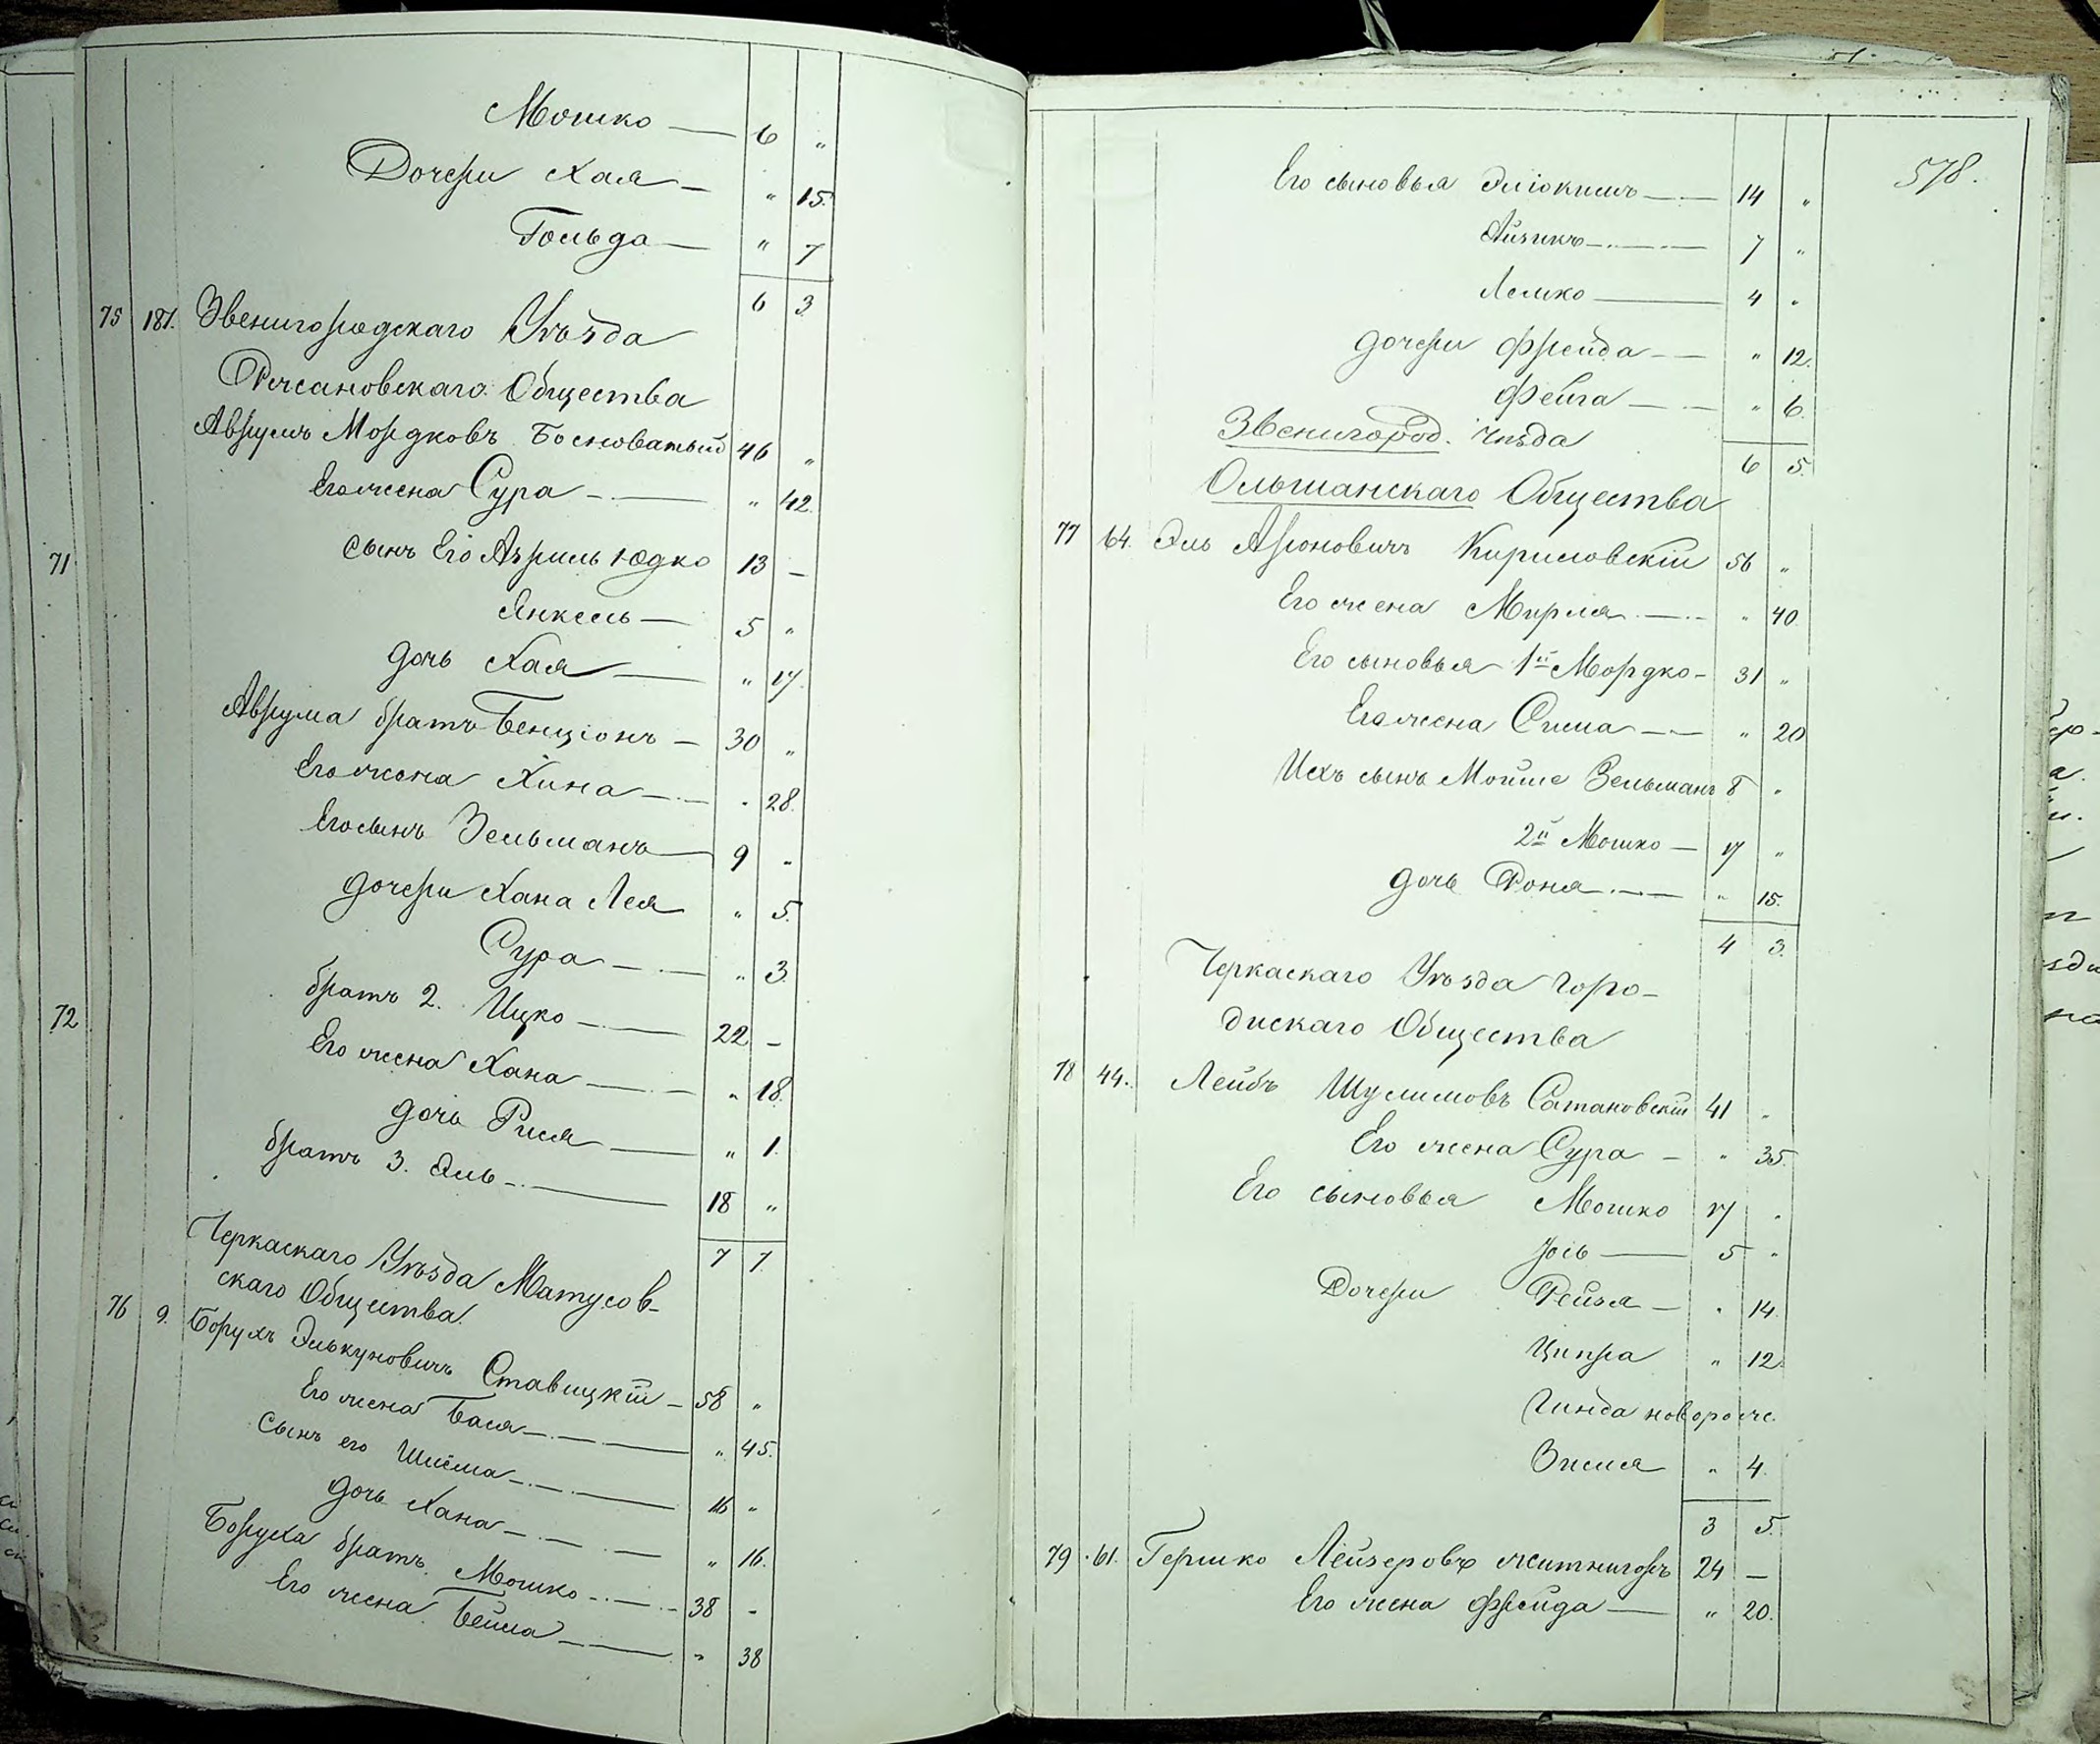 Мошко — 6 "
Дочери Хая — " 15.
Гольда — " 7
6 3
75 187. Звенигородскаго Уѣзда
Рисановскаго Общества
Аврумъ Мордковъ Босноватый 46 "
Его жена Сура — " 42.
Сынъ Его Азриль Юдко 13 —
Янкель — 5 "
дочь Хая — " 17.
Аврума братъ Бенціонъ — 30 "
Его жена Хина — " 28.
Его сынъ Зельманъ — 9 "
дочери Хана Лея " 5.
Сура — " 3.
братъ 2. Ицко — 22 —
Его жена Хана — " 18.
дочь Рися — " 1.
братъ 3. Эль — 18 "
7 7
Черкаскаго Уѣзда Матусов-
скаго Общества.
76 9. Борухъ Элькуновичъ Ставицкій — 58 "
Его жена Бася — " 45.
Сынъ его Шлёма — 16 "
дочь Хана — " 16.
Боруха братъ Мошко — 38 -
Его жена Бейла — " 38
71
72
578.
Его сыновья Эліокимъ — 14 "
Айзикъ — 7 "
Лейко — 4 "
дочери Фрейда — " 12.
Фейга — " 6.
6 5.
Звенигород. Уѣзда
Ольшанскаго Общества
77 64. Эль Ароновичъ Кириловскій 56 "
Его жена Мирля — " 40
Его сыновья 1й Мордко - 31 "
Его жена Сима — " 20
Ихъ сынъ Мойше Зельманъ 8 "
2й Мошко — 17 "
дочь Роня — " 15.
4 3.
Черкаскаго Уѣзда Горо-
дискаго Общества
78 44. Лейбъ Шулимовъ Сатановскій 41 "
Его жена Сура — " 35.
Его сыновья Мошко 17 "
Јось — 5 "
Дочери Рейзя — " 14.
Ципра " 12.
Гинда новорож.
Зисля " 4.
3 5.
79 61. Гершко Лейзеровъ Житнигоръ 24 —
Его жена Фрейда — " 20.